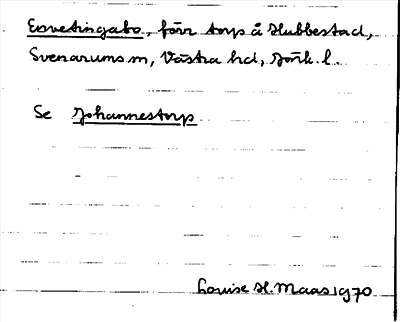 Esvetingabo, förr torp å Hubbestad,
Svenarums sn, Västra hd, Jönk. l.
Se Johannestorp
Louise H. Maas 1970